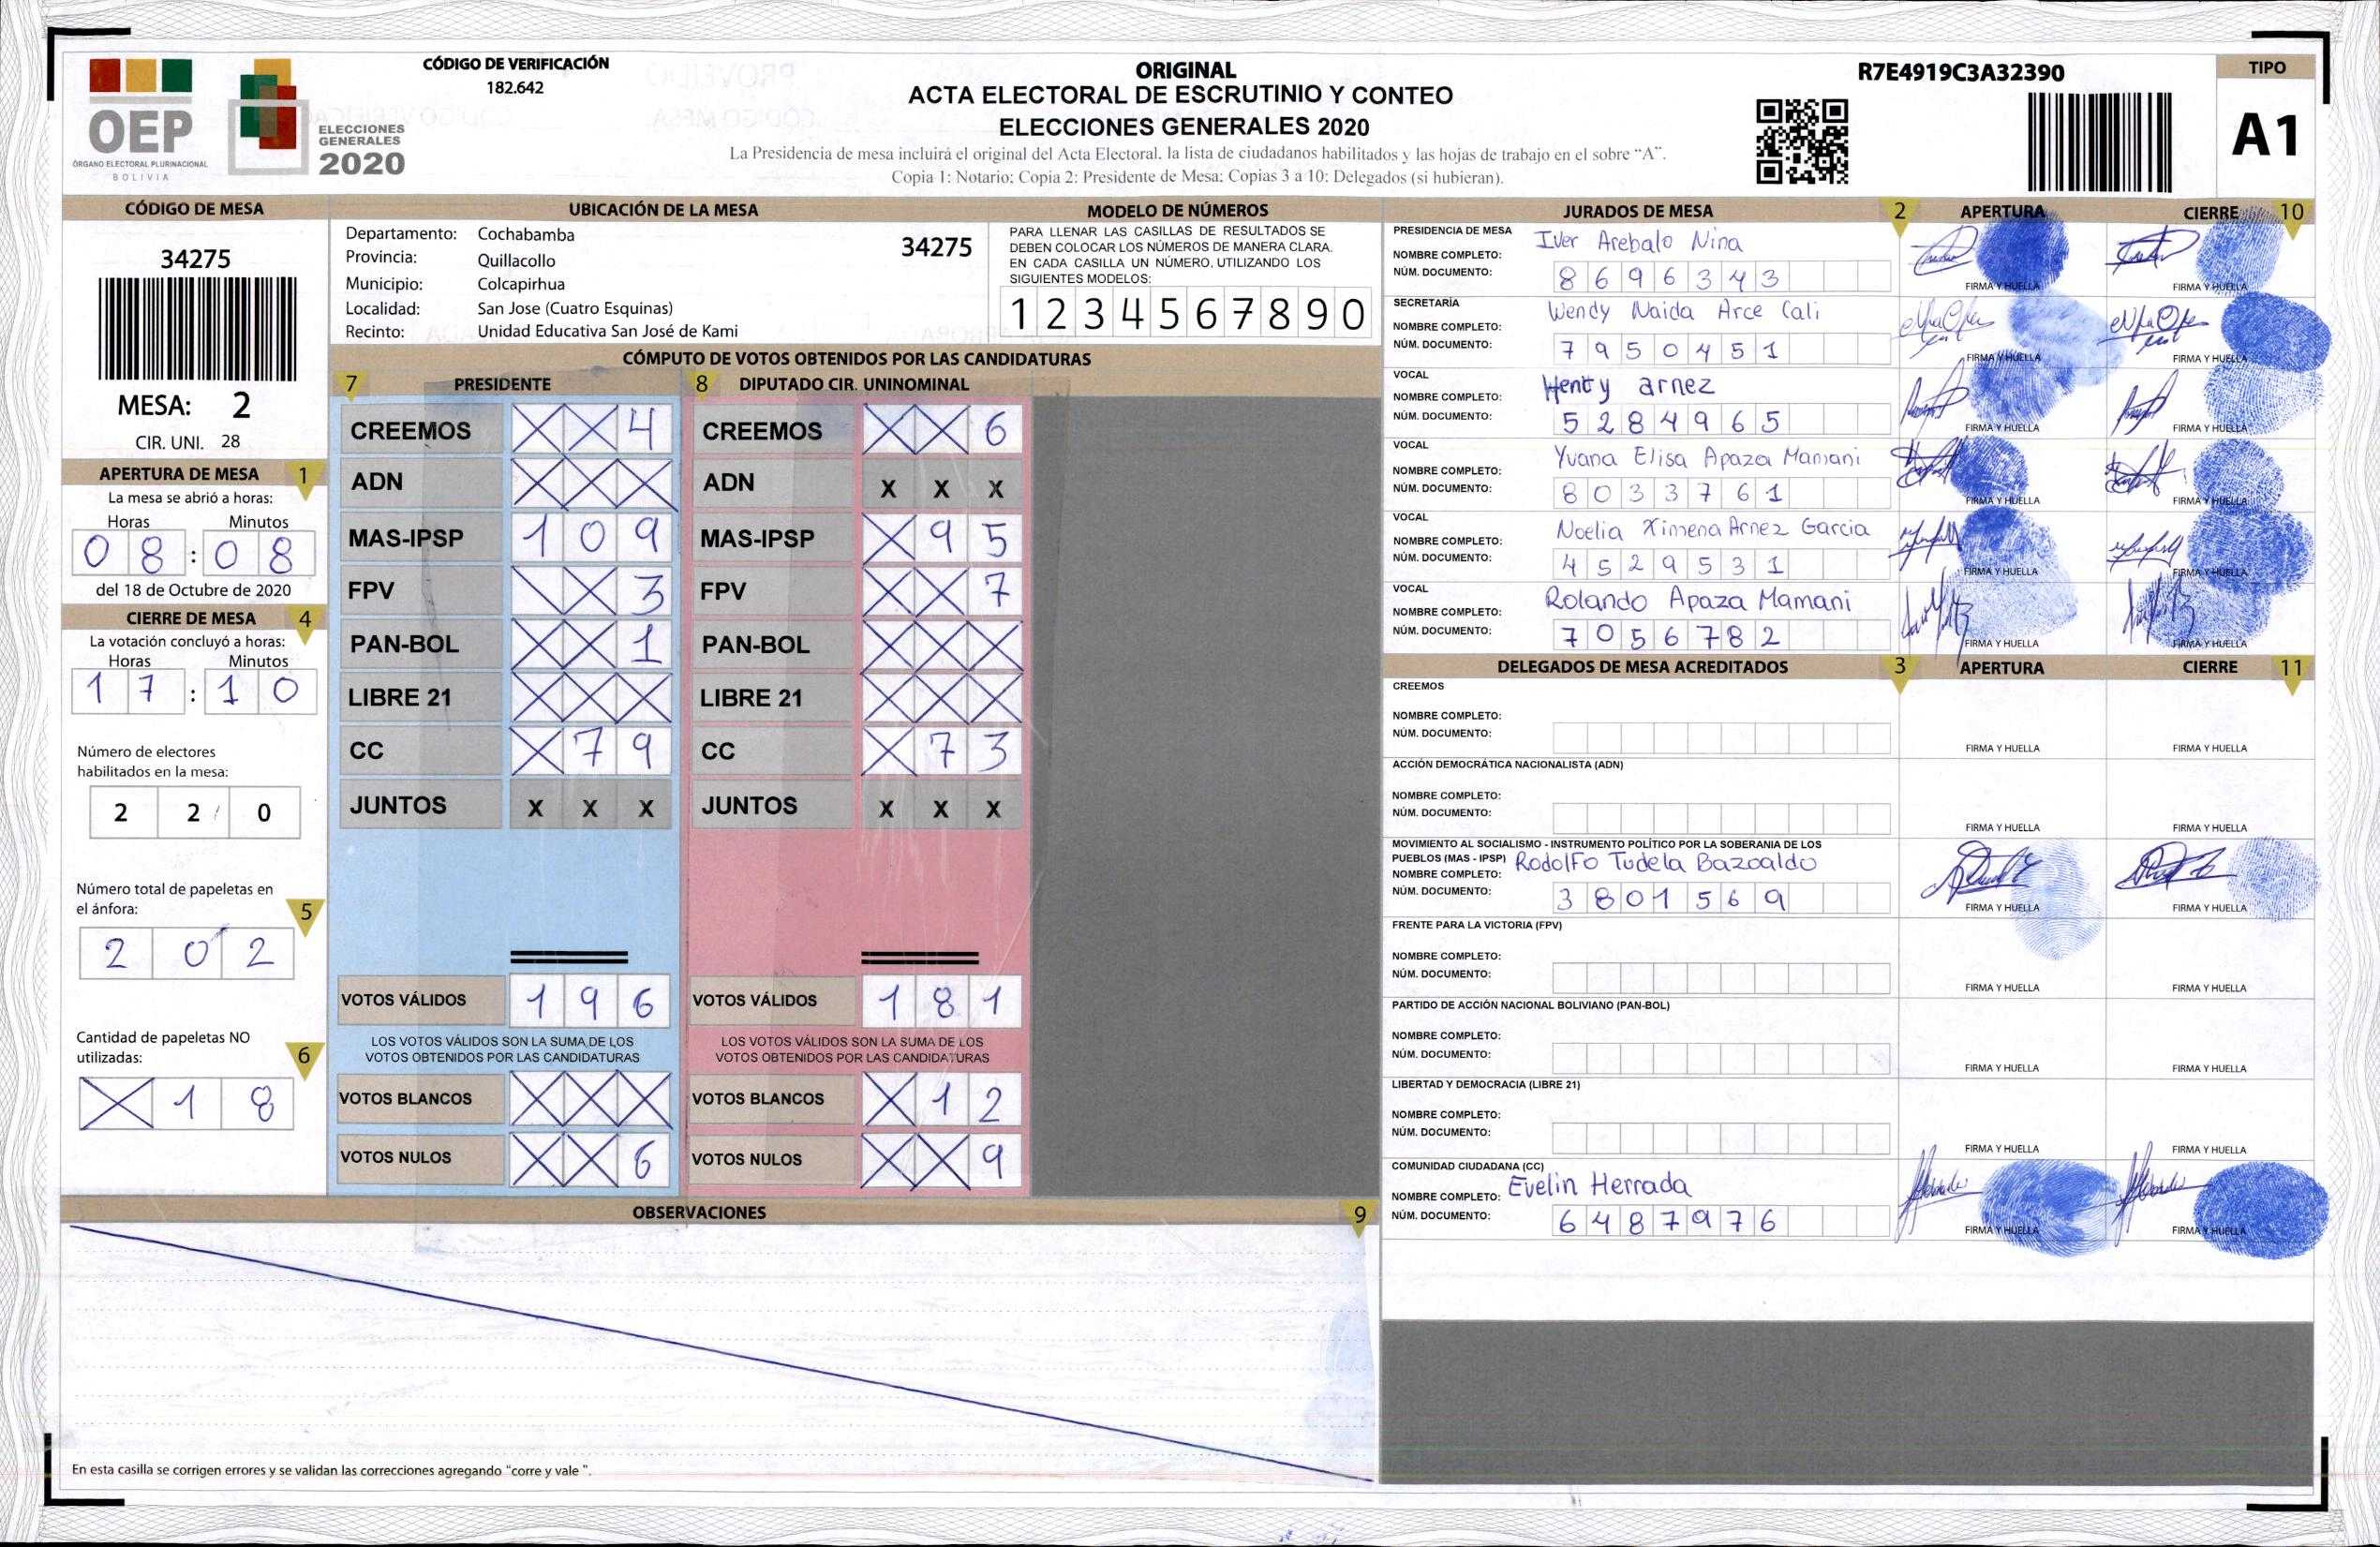 OEP
ÓRGANO ELECTORAL PLURINACIONAL
BOLIVIA
ELECCIONES
GENERALES
2020
CÓDIGO DE VERIFICACIÓN
182.642
ORIGINAL
ACTA ELECTORAL DE ESCRUTINIO Y CONTEO
ELECCIONES GENERALES 2020
La Presidencia de mesa incluirá el original del Acta Electoral. la lista de ciudadanos habilitados y las hojas de trabajo en el sobre “A”.
Copia 1: Notario; Copia 2: Presidente de Mesa; Copias 3 a 10: Delegados (si hubieran).
R7E4919C3A32390
TIPO
A1
CÓDIGO DE MESA
34275
MESA: 2
CIR. UNI. 28
APERTURA DE MESA 1
La mesa se abrió a horas:
Horas Minutos
0 8 : 0 8
del 18 de Octubre de 2020
CIERRE DE MESA 4
La votación concluyó a horas:
Horas Minutos
1 7 : 1 0
Número de electores
habilitados en la mesa:
2 2 0
Número total de papeletas en
el ánfora: 5
2 0 2
Cantidad de papeletas NO
utilizadas: 6
X 1 8
UBICACIÓN DE LA MESA
Departamento: Cochabamba
34275
Provincia: Quillacollo
Municipio: Colcapirhua
Localidad: San Jose (Cuatro Esquinas)
Recinto: Unidad Educativa San José de Kami
MODELO DE NÚMEROS
PARA LLENAR LAS CASILLAS DE RESULTADOS SE
DEBEN COLOCAR LOS NÚMEROS DE MANERA CLARA.
EN CADA CASILLA UN NÚMERO, UTILIZANDO LOS
SIGUIENTES MODELOS:
1 2 3 4 5 6 7 8 9 0
CÓMPUTO DE VOTOS OBTENIDOS POR LAS CANDIDATURAS
7 PRESIDENTE
CREEMOS X X 4
ADN X X X
MAS-IPSP 1 0 9
FPV X X 3
PAN-BOL X X 1
LIBRE 21 X X X
CC X 7 9
JUNTOS X X X
VOTOS VÁLIDOS 1 9 6
LOS VOTOS VÁLIDOS SON LA SUMA DE LOS
VOTOS OBTENIDOS POR LAS CANDIDATURAS
VOTOS BLANCOS X X X
VOTOS NULOS X X 6
8 DIPUTADO CIR. UNINOMINAL
CREEMOS X X 6
ADN X X X
MAS-IPSP X 9 5
FPV X X 7
PAN-BOL X X X
LIBRE 21 X X X
CC X 7 3
JUNTOS X X X
VOTOS VÁLIDOS 1 8 1
LOS VOTOS VÁLIDOS SON LA SUMA DE LOS
VOTOS OBTENIDOS POR LAS CANDIDATURAS
VOTOS BLANCOS X 1 2
VOTOS NULOS X X 9
OBSERVACIONES 9
En esta casilla se corrigen errores y se validan las correcciones agregando “corre y vale ”.
JURADOS DE MESA 2 APERTURA CIERRE 10
PRESIDENCIA DE MESA
NOMBRE COMPLETO: Iver Arebalo Nina
NÚM. DOCUMENTO: 8 6 9 6 3 4 3
FIRMA Y HUELLA FIRMA Y HUELLA
SECRETARÍA
NOMBRE COMPLETO: Wendy Naida Arce Cali
NÚM. DOCUMENTO: 7 9 5 0 4 5 1
FIRMA Y HUELLA FIRMA Y HUELLA
VOCAL
NOMBRE COMPLETO: Henry arnez
NÚM. DOCUMENTO: 5 2 8 4 9 6 5
FIRMA Y HUELLA FIRMA Y HUELLA
VOCAL
NOMBRE COMPLETO: Yvana Elisa Apaza Mamani
NÚM. DOCUMENTO: 8 0 3 3 7 6 1
FIRMA Y HUELLA FIRMA Y HUELLA
VOCAL
NOMBRE COMPLETO: Noelia Ximena Arnez Garcia
NÚM. DOCUMENTO: 4 5 2 9 5 3 1
FIRMA Y HUELLA FIRMA Y HUELLA
VOCAL
NOMBRE COMPLETO: Rolando Apaza Mamani
NÚM. DOCUMENTO: 7 0 5 6 7 8 2
FIRMA Y HUELLA FIRMA Y HUELLA
DELEGADOS DE MESA ACREDITADOS 3 APERTURA CIERRE 11
CREEMOS
NOMBRE COMPLETO:
NÚM. DOCUMENTO:
FIRMA Y HUELLA FIRMA Y HUELLA
ACCIÓN DEMOCRÁTICA NACIONALISTA (ADN)
NOMBRE COMPLETO:
NÚM. DOCUMENTO:
FIRMA Y HUELLA FIRMA Y HUELLA
MOVIMIENTO AL SOCIALISMO - INSTRUMENTO POLÍTICO POR LA SOBERANIA DE LOS
PUEBLOS (MAS - IPSP)
NOMBRE COMPLETO: Rodolfo Tudela Bazoaldo
NÚM. DOCUMENTO: 3 8 0 1 5 6 9
FIRMA Y HUELLA FIRMA Y HUELLA
FRENTE PARA LA VICTORIA (FPV)
NOMBRE COMPLETO:
NÚM. DOCUMENTO:
FIRMA Y HUELLA FIRMA Y HUELLA
PARTIDO DE ACCIÓN NACIONAL BOLIVIANO (PAN-BOL)
NOMBRE COMPLETO:
NÚM. DOCUMENTO:
FIRMA Y HUELLA FIRMA Y HUELLA
LIBERTAD Y DEMOCRACIA (LIBRE 21)
NOMBRE COMPLETO:
NÚM. DOCUMENTO:
FIRMA Y HUELLA FIRMA Y HUELLA
COMUNIDAD CIUDADANA (CC)
NOMBRE COMPLETO: Evelin Herrada
NÚM. DOCUMENTO: 6 4 8 7 9 7 6
FIRMA Y HUELLA FIRMA Y HUELLA